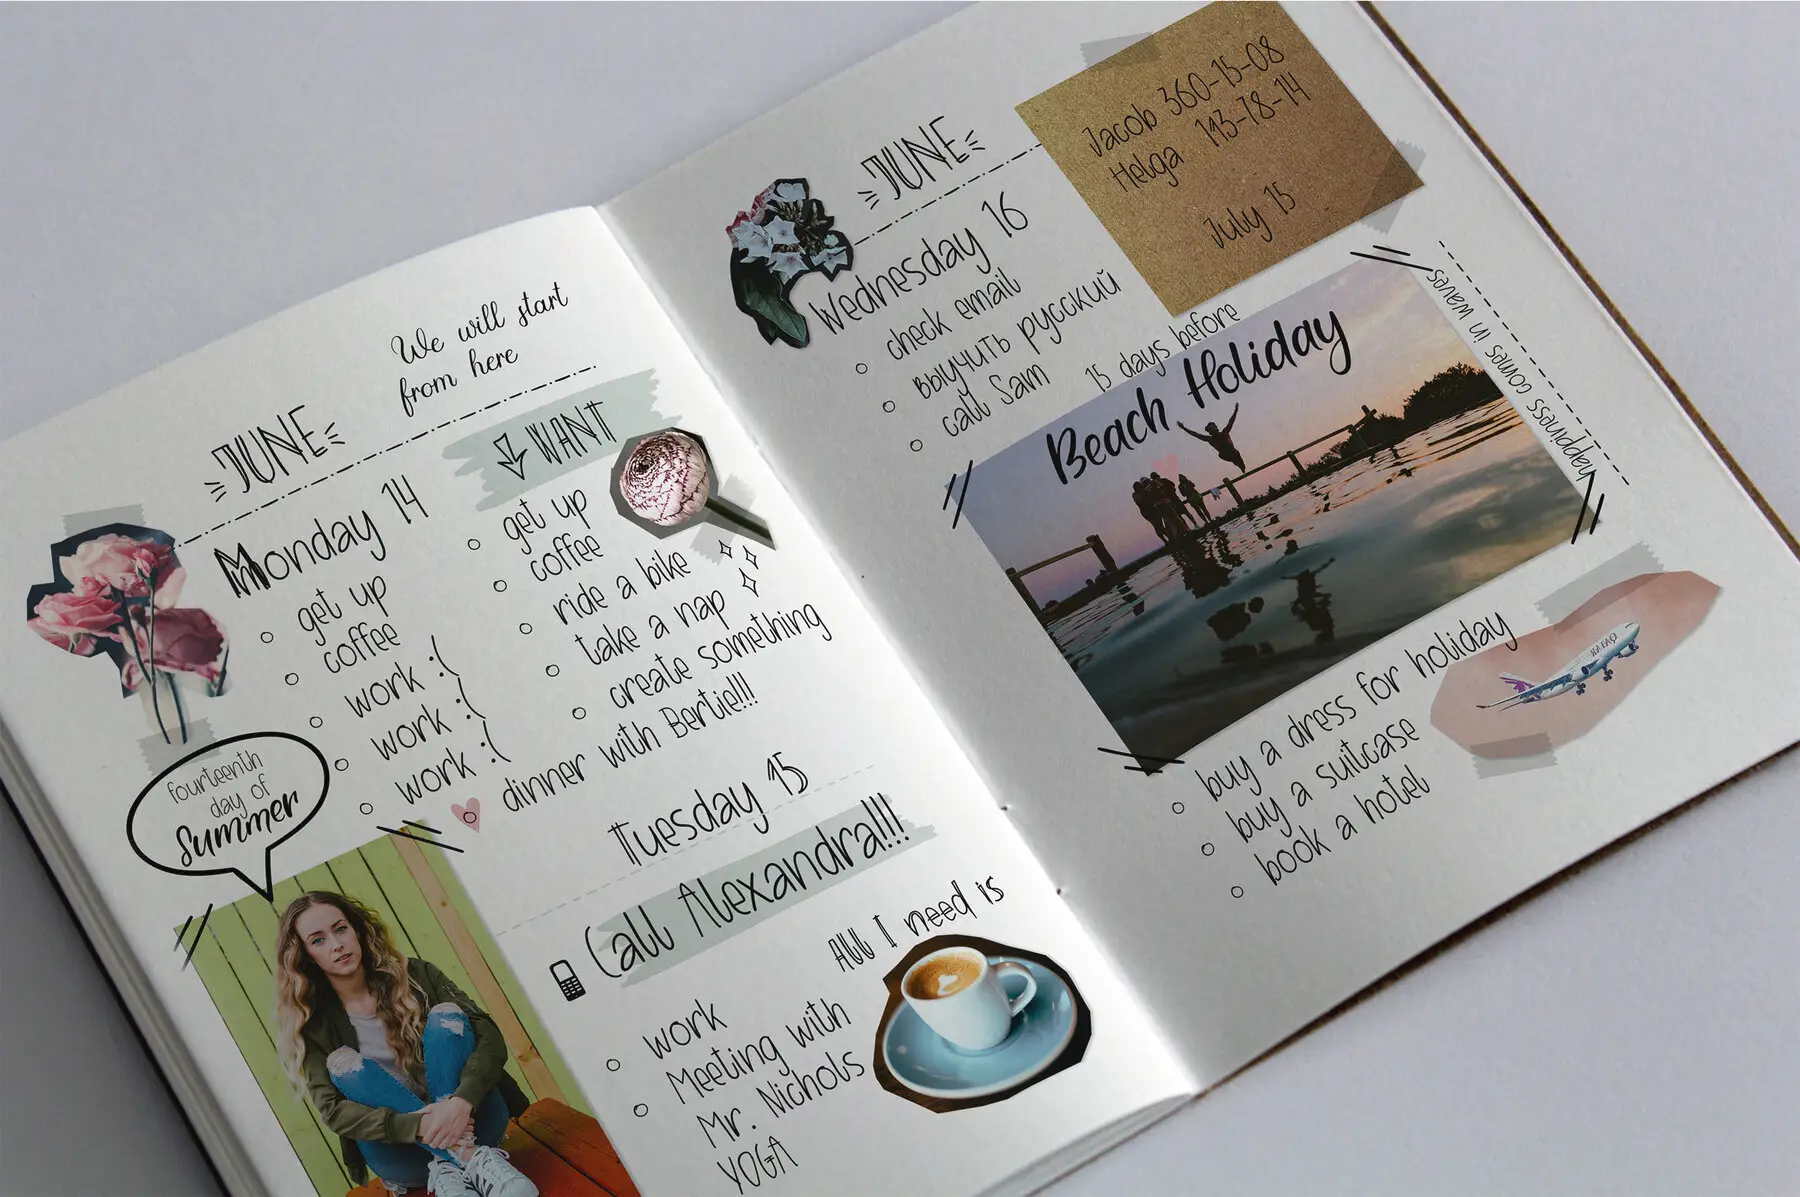 We will start
from here
JUNE
Monday 14
get up
coffee
work :(
work :(
work :(
WANT
get up
coffee
ride a bike
take a nap
create something
dinner with Bertie!!!
fourteenth
day of
Summer
Tuesday 15
Call Alexandra!!!
All I need is
work
Meeting with
Mr. Nichols
YOGA
JUNE
Wednesday 16
check email
выучить русский
call Sam
Jacob 360-15-08
Helga 113-78-14
July 15
15 days before
Beach Holiday
happiness comes in waves
buy a dress for holiday
buy a suitcase
book a hotel